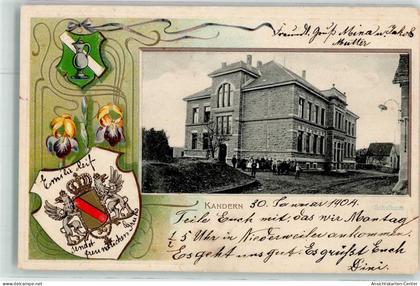 Freundl. Gruß Mina u. Jakob
Mutter
Emilie Reif
sendet
freundlichen Gruß
KANDERN
Schulhaus
30. Januar 1904.
Teile Euch mit, das wir Montag
½ 5 Uhr in Niederweiler ankommen.
Es geht uns gut. Es grüßt Euch
Lini.
www.Ansichtskarten-Center.de